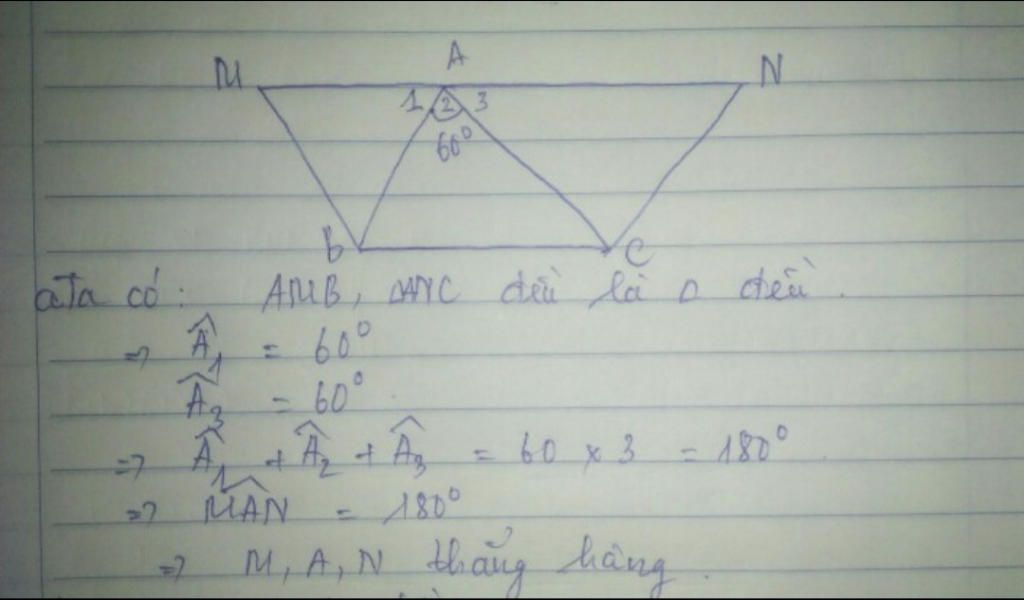 M A N
1 2 3
60°
B C
a Ta có: AMB, ANC đều là △ đều.
=> Â₁ = 60°
Â₃ = 60°
=> Â₁ + Â₂ + Â₃ = 60 x 3 = 180°
=> MAN = 180°
=> M, A, N thẳng hàng.